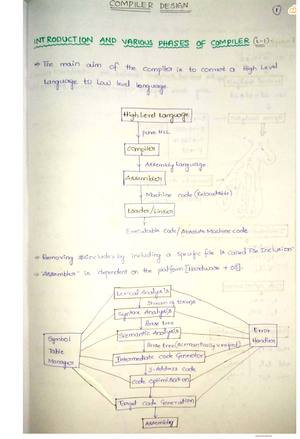 COMPILER DESIGN
1
INTRODUCTION AND VARIOUS PHASES OF COMPILER (L-1)
⇒ The main aim of the compiler is to convert a High Level
Language to Low level language.
High Level Language
pure HLL
Compiler
Assembly Language
Assembler
Machine code (Relocatable)
Loader/Linker
Executable code/Absolute Machine code
⇒ Removing #includes by including a specific file is called "File Inclusion"
⇒ "Assembler" is dependent on the platform [Hardware + OS].
Lexical Analysis
Stream of tokens
Syntax Analysis
Parse tree
Semantic Analysis
Parse tree (semantically verified)
Symbol
Table
Manager
Error
Handler
Intermediate code Generator
3-Address code
Code Optimisation
Target code Generation
Assembly